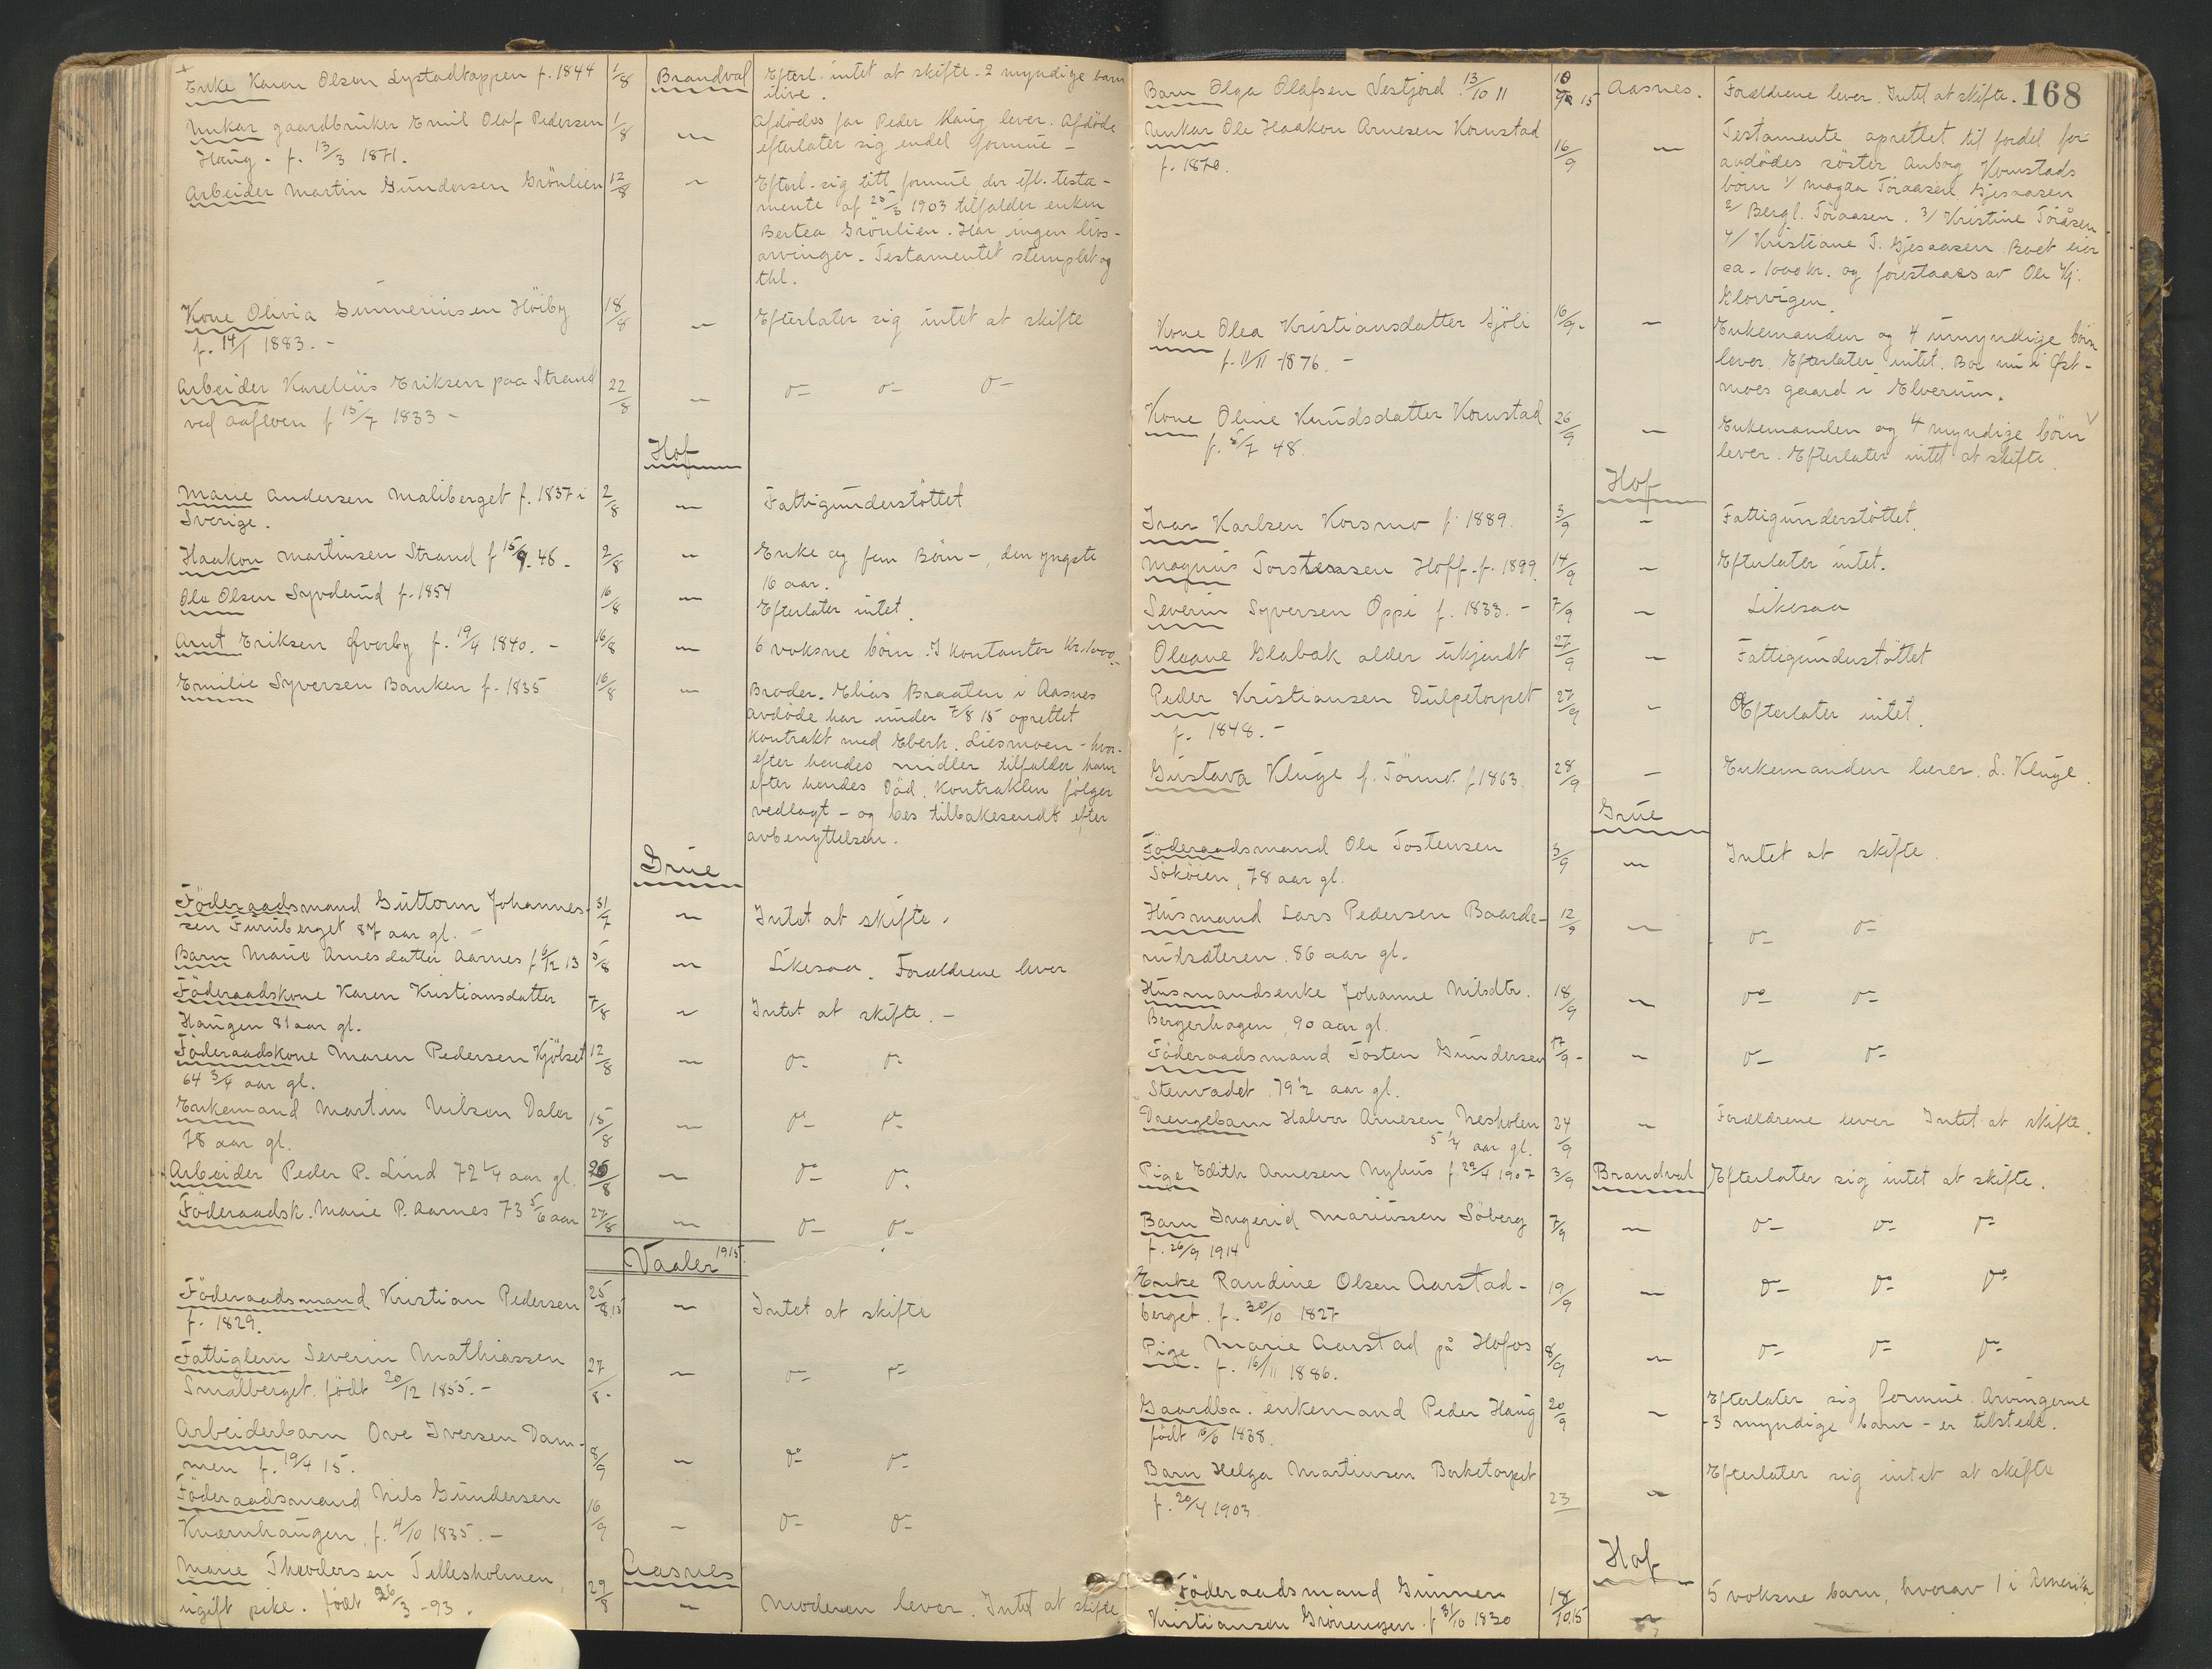 Enke Karen Olsen Lystadtappen f. 1844 1/8 Brandval Efterl. intet at skifte. 2 myndige barn
ilive.
Unkar gaardbruker Emil Olaf Pedersen 1/8 — Afdødes far Peder Haug lever. Afdöde
Haug. f. 13/3 1871. efterlater sig endel formue —
Arbeider Martin Gundersen Grönlien 12/8 — Efterl. sig litt formue, der efl. testa-
mente af 25/3 1903 tilfalder enken
Bertea Grönlien. Har ingen livs-
arvinger. Testamentet stemplet og
thl.
Kone Olivia Gunneriusen Höiby 18/8 — Efterlater sig intet at skifte
f. 14/1 1883. —
Arbeider Karelius Eriksen paa Strand 22/8 — o— o— o—
ved Aafloen f 15/7 1833 —
Hof
Marie Andersen Maliberget f. 1837 i 2/8 — Fattigunderstöttet
Sverige.
Haakon Martinsen Strand f 15/9. 48. 2/8 — Enke og fem Börn —, den yngste
16 aar.
Ole Olsen Syverud f. 1854 16/8 — Efterlater intet.
Arnt Eriksen Overby f. 19/4 1840. — 16/8 — 6 voksne börn. I kontanter Kr. 1000.—
Emilie Syversen Banken f. 1835 16/8 — Broder. Elias Braaten i Aasnes
avdöde har under 7/8 15 oprettet
kontrakt med Eberh. Liesmoen - hvor-
efter hendes midler tilfalder ham
efter hendes Död. Kontrakten fölger
vedlagt — og bes tilbakesendt efter
avbenyttelsen.
Grue
Föderaadsmand Guttorm Johannes- 31/7 — Intet at skifte.
sen Furuberget 87 aar gl. —
Barn Marie Arnesdatter Aarnes f 6/12 13 5/8 — Likesaa. Forældrene lever
Föderaadskone Karen Kristiansdatter 7/8 — Intet at skifte. —
Haugen 81 aar gl.
Föderaadskone Maren Pedersen Kjölset 12/8 — o— o—
64 3/4 aar gl.
Enkemand Martin Nilsen Daler 15/8 — o— o—
78 aar gl.
Arbeider Peder P. Lind 72 1/4 aar gl. 26/8 — o— o—
Föderaadsk. Marie P. Aarnes 73 5/6 aar 27/8 — o— o—
Vaaler 1915.
Föderaadsmand Kristian Pedersen 25/8 15 — Intet at skifte
f. 1829.
Fattiglem Severin Mathiassen 27/8. — o— o—
Smalberget. födt 20/12 1855. —
Arbeiderbarn Ove Iversen Dam- 8/9 — o— o—
men f. 19/4 15.
Föderaadsmand Nils Gundersen 16/9 — o— o—
Kværnhaugen, f. 4/10 1835. —
Aasnes
Marie Theodersen Tellesholmen, 29/8 — Moderen lever. Intet at skifte
ugift pike. födt 26/3 -93.
168
Barn Olga Olafsen Vestjord. 13/10 11 15 Aasnes. Forældrene lever. Intet at skifte.
Unkar Ole Haakon Arnesen Kornstad 16/9 — Testamente oprettet til fordel for
f. 1870. avdödes söster Anborg Kornstads
börn 1/ Magda Toraasen Gjesaasen
2/ Bergl. Toraasen. 3/ Kristine Toråsen
4/ Kristiane T. Gjesaasen. Boet eier
ca. 1000 kr. og forestaaes av Ole Kj.
Klovvigen.
Kone Olea Kristiansdatter Sjöli 16/9. — Enkemanden og 4 umyndige börn
f. 11/11 1876. — lever. Efterlater intet. Bor nu i Öst-
moes gaard i Elverum.
Kone Oline Knudsdatter Kornstad 26/9 — Enkemanden og 4 myndige börn
f. 5/7 48. lever. Efterlater intet at skifte.
Hof
Ivar Karlsen Korsmo f. 1889. 3/9 — Fattigunderstöttet.
Magnus Torstensen Hoff. f. 1899. 14/9 — Efterlater intet.
Severin Syversen Oppi f. 1833. — 7/9 — Likesaa
Oleane Glabak alder ukjendt 27/9 — Fattigunderstöttet
Peder Kristiansen Dulpetorpet 27/9 — Efterlater intet.
f. 1848. —
Gustava Kluge f. Törmo. f 1863 28/9 — Enkemanden lærer. L. Kluge.
Grue
Föderaadsmand Ole Tostensen 3/9 — Intet at skifte.
Sököien, 78 aar gl.
Husmand Lars Pedersen Baarde- 12/9 — o— o—
rudsæteren. 86 aar gl.
Husmandsenke Johanne Nilsdtr. 18/9 — o— o—
Bergerhagen, 90 aar gl.
Föderaadsmand Tosten Gundersen 17/9 — — o— o—
Stenvadet. 79 1/2 aar gl.
Drengebarn Halvor Arnesen Nesholen 24/9 — Forældrene lever Intet at skifte.
5 1/4 aar gl.
Pige Edith Arnesen Nyhus f. 29/4 1907 3/9 Brandval Efterlater sig intet at skifte.
Barn Ingerid Mariussen Söberg 7/9 — o— o— o—
f. 26/9 1914
Enke Randine Olsen Aarstad- 19/9 — o— o— o—
berget. f. 30/10 1827
Pige Marie Aarstad på Hofos 8/9 — o— o— o—
f. 16/11 1886.
Gaardbr. enkemand Peder Haug 20/9 — Efterlater sig formue. Arvingerne
födt 16/6 1838. -3 myndige barn - er tilstede.
Barn Helga Martinsen Berketorpet 23 — Efterlater sig intet at skifte
f. 20/4 1903.
Hof
Föderaadsmand Gunner 18/10 15 — 5 voksne barn, hvorav 1 i Amerika
Kristiansen Gröneengen. f 31/10 1830